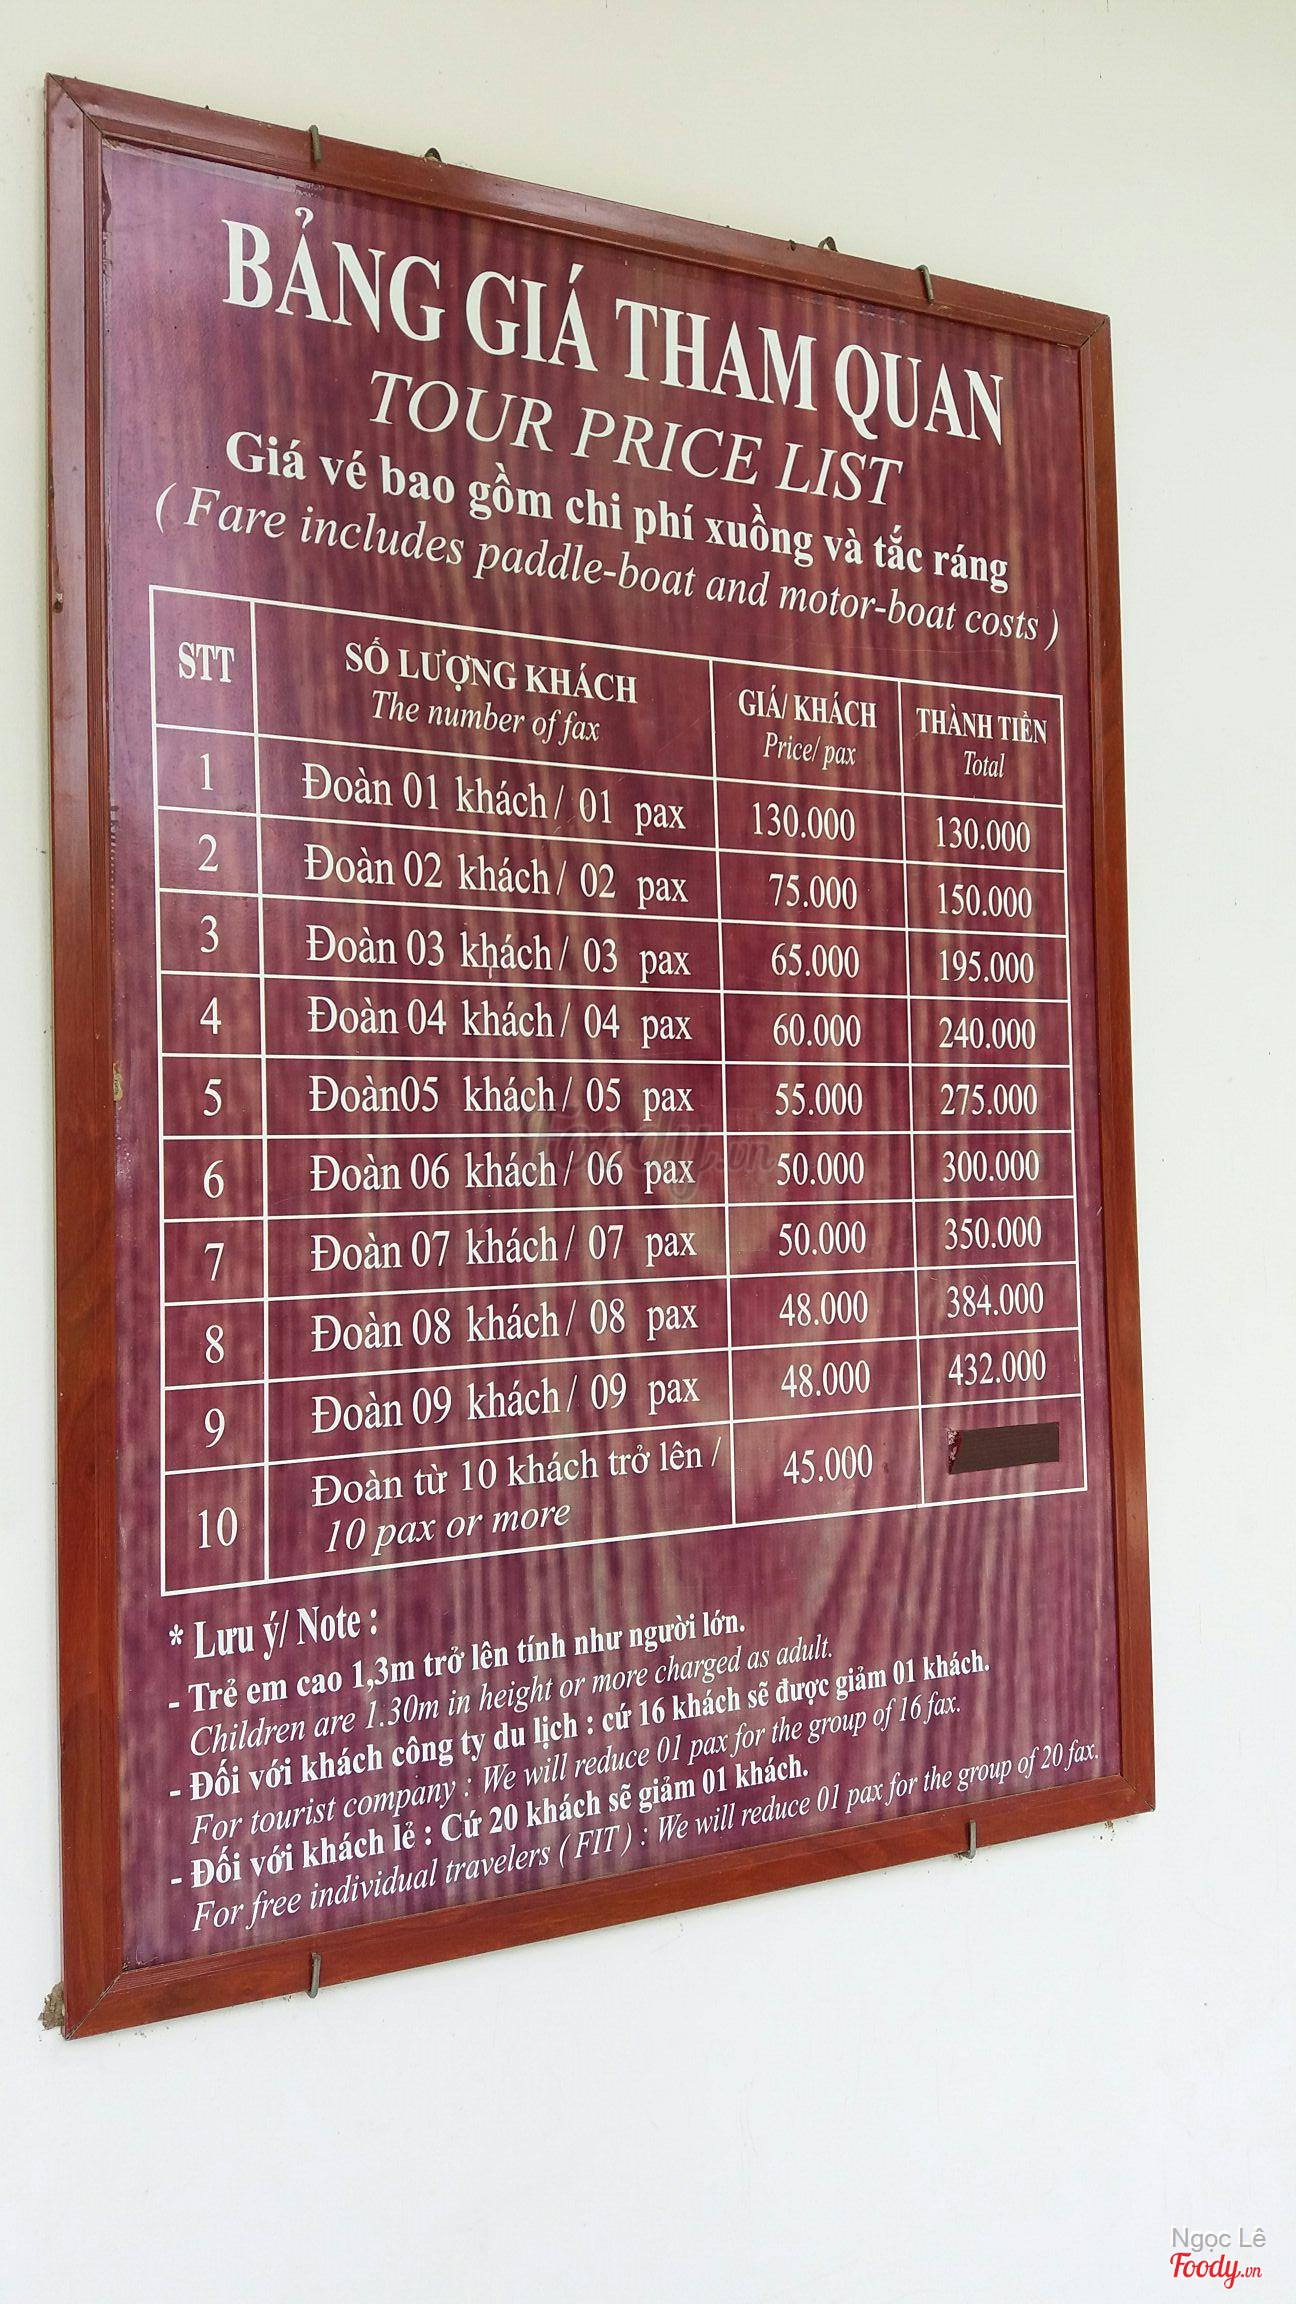 BẢNG GIÁ THAM QUAN
TOUR PRICE LIST
Giá vé bao gồm chi phí xuồng và tắc ráng
( Fare includes paddle-boat and motor-boat costs )
STT SỐ LƯỢNG KHÁCH GIÁ/ KHÁCH THÀNH TIỀN
The number of fax Price/ pax Total
1 Đoàn 01 khách / 01 pax 130.000 130.000
2 Đoàn 02 khách / 02 pax 75.000 150.000
3 Đoàn 03 khách / 03 pax 65.000 195.000
4 Đoàn 04 khách / 04 pax 60.000 240.000
5 Đoàn05 khách / 05 pax 55.000 275.000
6 Đoàn 06 khách / 06 pax 50.000 300.000
7 Đoàn 07 khách / 07 pax 50.000 350.000
8 Đoàn 08 khách / 08 pax 48.000 384.000
9 Đoàn 09 khách / 09 pax 48.000 432.000
10 Đoàn từ 10 khách trở lên / 45.000
10 pax or more
* Lưu ý/ Note :
- Trẻ em cao 1,3m trở lên tính như người lớn.
Children are 1.30m in height or more charged as adult.
- Đối với khách công ty du lịch : cứ 16 khách sẽ được giảm 01 khách.
For tourist company : We will reduce 01 pax for the group of 16 fax.
- Đối với khách lẻ : Cứ 20 khách sẽ giảm 01 khách.
For free individual travelers ( FIT ) : We will reduce 01 pax for the group of 20 fax.
Foody.vn
Ngọc Lê
Foody.vn